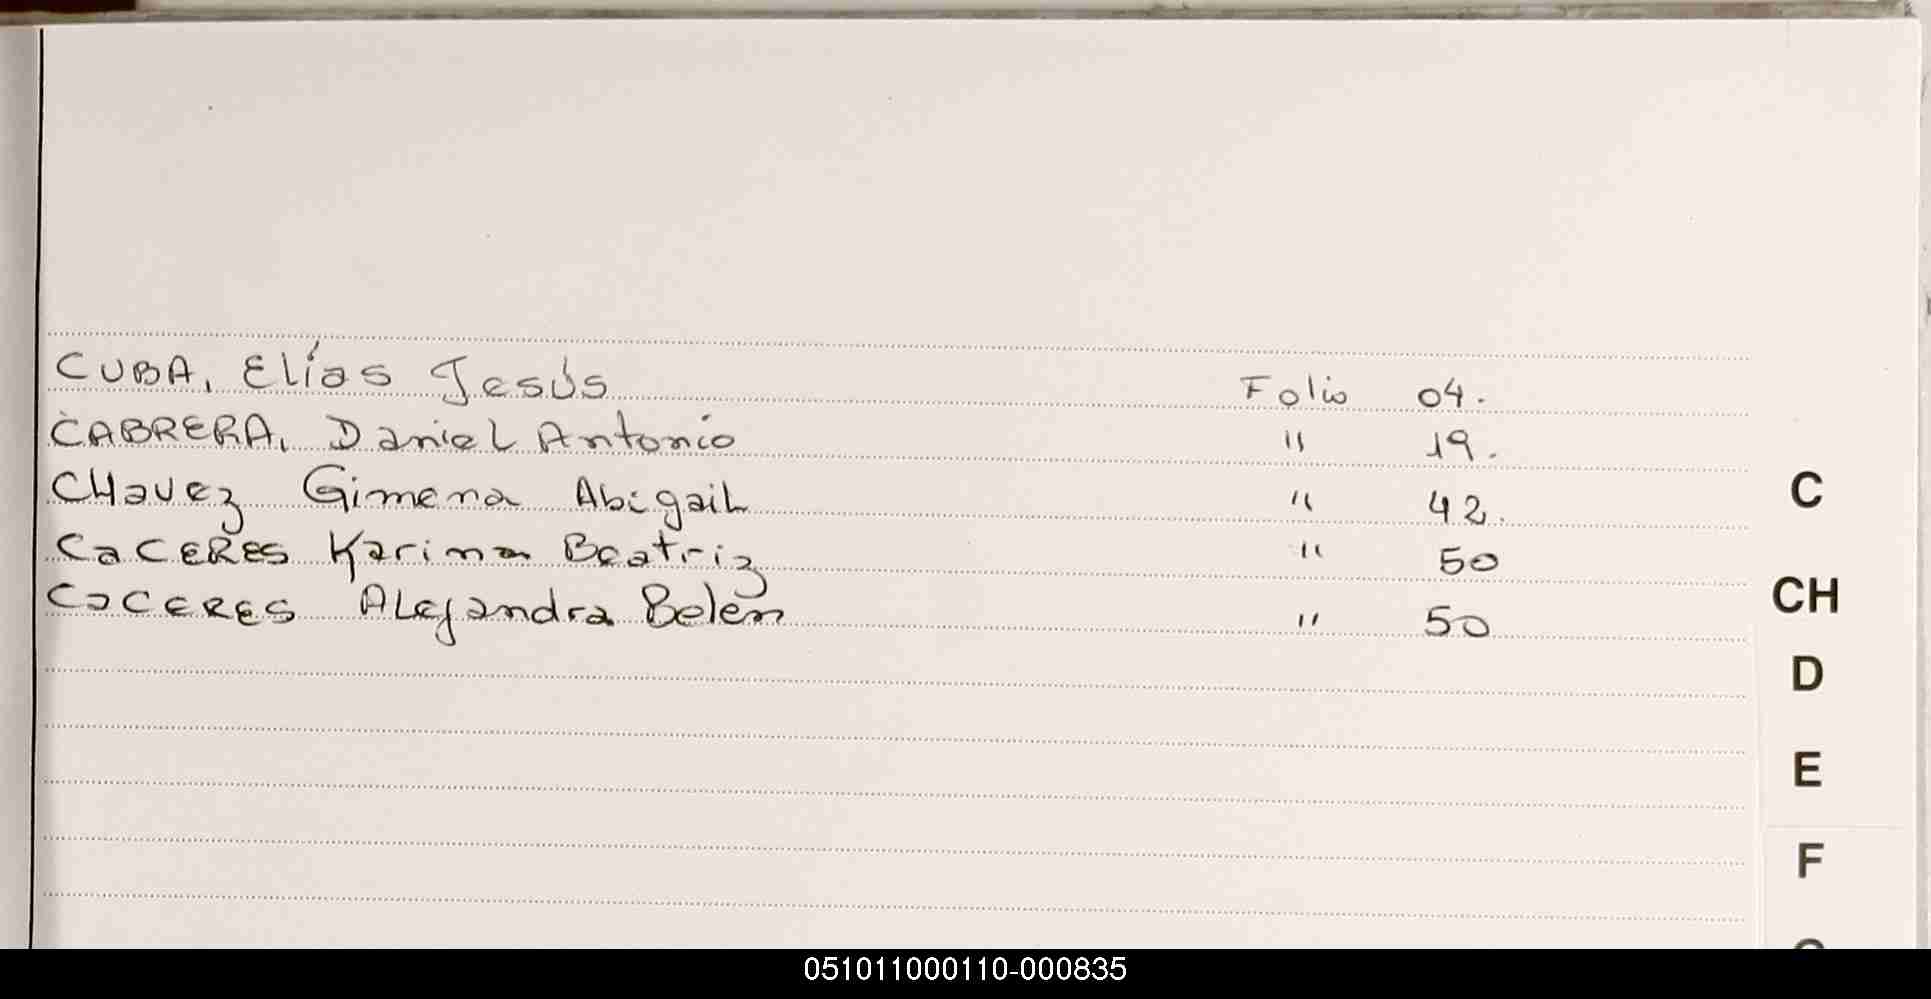 CUBA, Elías Jesús Folio 04.
CABRERA, Daniel Antonio " 19.
CHavez Gimena Abigail " 42.
CaCERES Karina Beatriz " 50
CaCERES Alejandra Belén " 50
C
CH
D
E
F
051011000110-000835